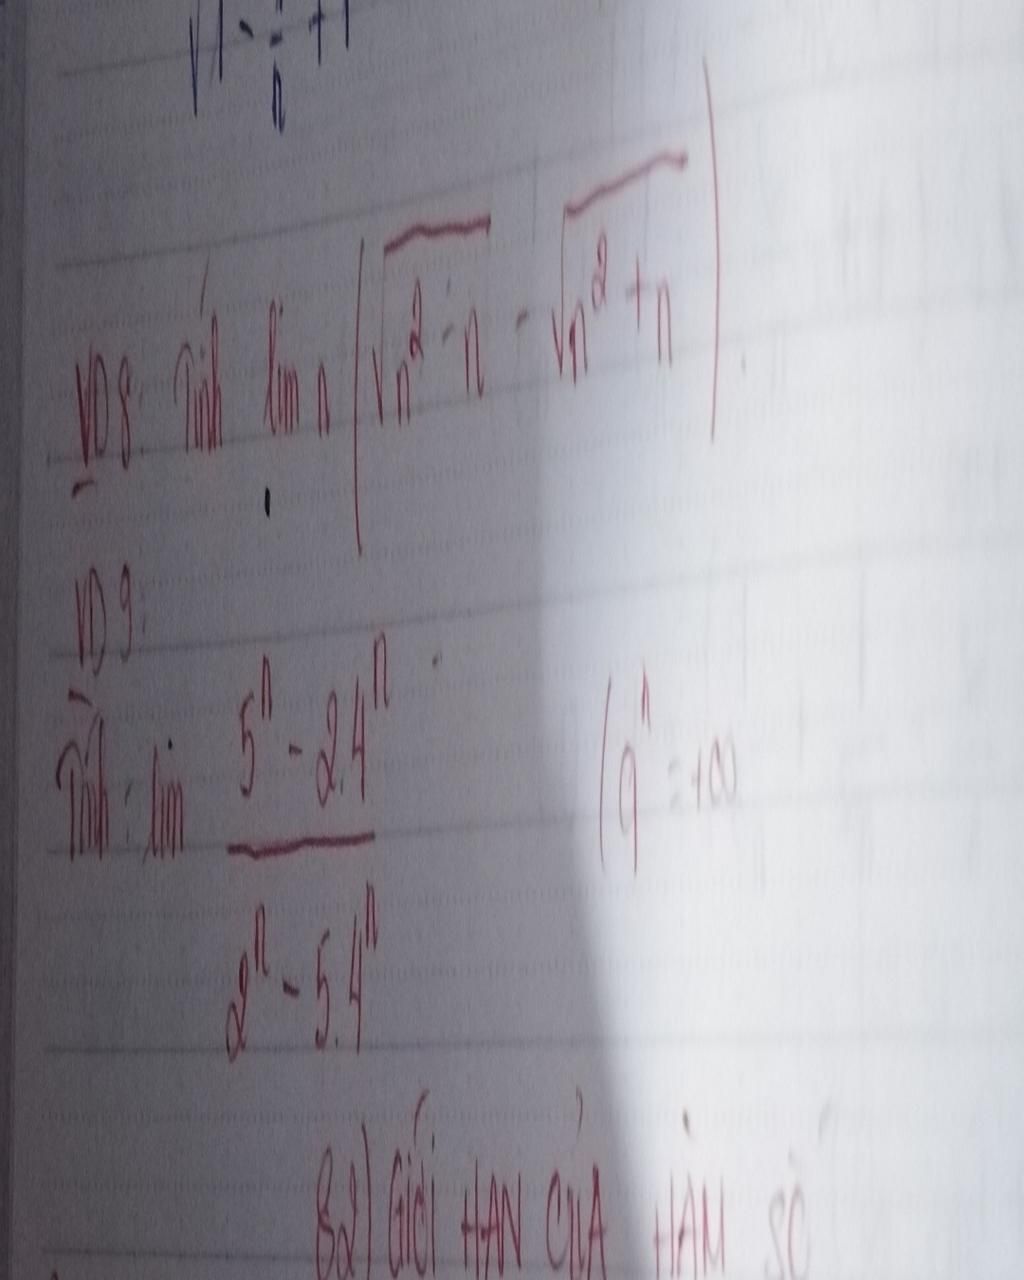 √1 - 1/n + 1
VD8: Tính lim n (√n² - n - √n² + n).
VD9:
Tính: lim (5ⁿ - 2.4ⁿ)/(2ⁿ - 5.4ⁿ) (qⁿ = +∞
B2) GIỚI HẠN CỦA HÀM SỐ